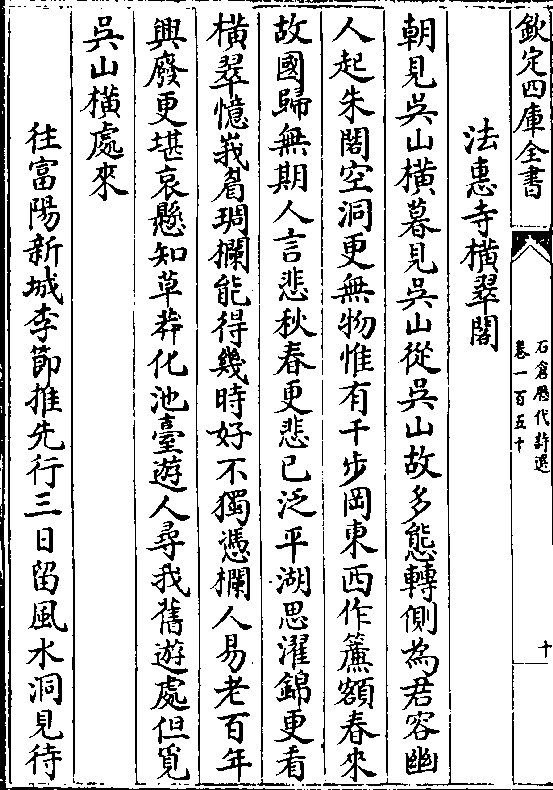 欽定四庫全書
石倉歷代詩選
卷一百五十
十
法惠寺橫翠閣
朝見吳山橫暮見吳山從吳山故多態轉側為君容幽
人起朱閣空洞更無物惟有千步岡東西作簾額春來
故國歸無期人言悲秋春更悲已泛平湖思濯錦更看
橫翠憶峩眉琱欄能得幾時好不獨憑欄人易老百年
興廢更堪哀懸知草莽化池臺遊人尋我舊遊處但覓
吳山橫處來
往富陽新城李節推先行三日留風水洞見待